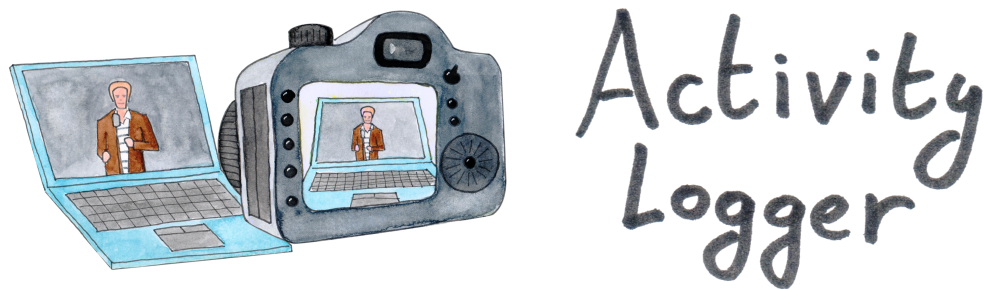 Activity
Logger